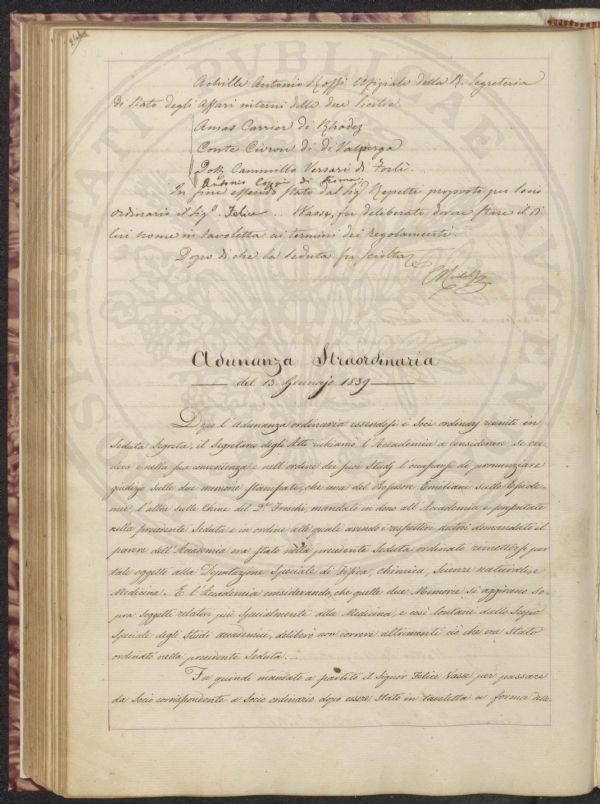 Achille Antonio Rossi Uffiziale della R. Segreteria
di Stato degli Affari interni delle due Sicilie
Amas Carrier di Rhodez
Conte Civron di di Valperga
Dott. Cammillo Versari di Forlì
Antonio Cozzi di Roma
In fine essendo stato dal Sig. Repetti proposto per Socio
ordinario il Sig. Felice .. Vasse, fu deliberato dover stare il di
lui nome in tavoletta ai termini dei regolamenti.
Dopo di che la Seduta fu sciolta
Adunanza Straordinaria
del 13. Gennajo 1839
Dopo l'Adunanza ordinaria essendosi i Soci ordinarj riuniti in
Seduta Segreta, il Segretario degli Atti richiamò l'Accademia a considerare se cre
deva nella sua convenienza e nell'ordine dei suoi Studj l'occuparsi di pronunziare
giudizio sulle due memorie stampate, che una del Professor Emiliani sulle Epide
mie, l'altra sulle Chine del D. Freschi, mandate in dono all'Accademia e presentate
nella precedente Seduta e in ordine alle quali avendo i rispettivi autori domandato il
parere dell'Accademia era stato nella precedente Seduta ordinato rimettersi per
tale oggetto alla Deputazione Speciale di Fisica, chimica, scienze naturali, e
Medicina. E l'Accademia considerando, che quelle due Memorie si aggirano so
pra soggetti relativi più specialmente alla Medicina, e così lontani dallo Scopo
Speciale degli Studi accademici, deliberò non correre altrimenti ciò che era stato
ordinato nella precedente Seduta.
Fu quindi mandato a partito il Signor Felice Vasse per passare
da Socio corrispondente a Socio ordinario dopo essere stato in tavoletta a forma dei